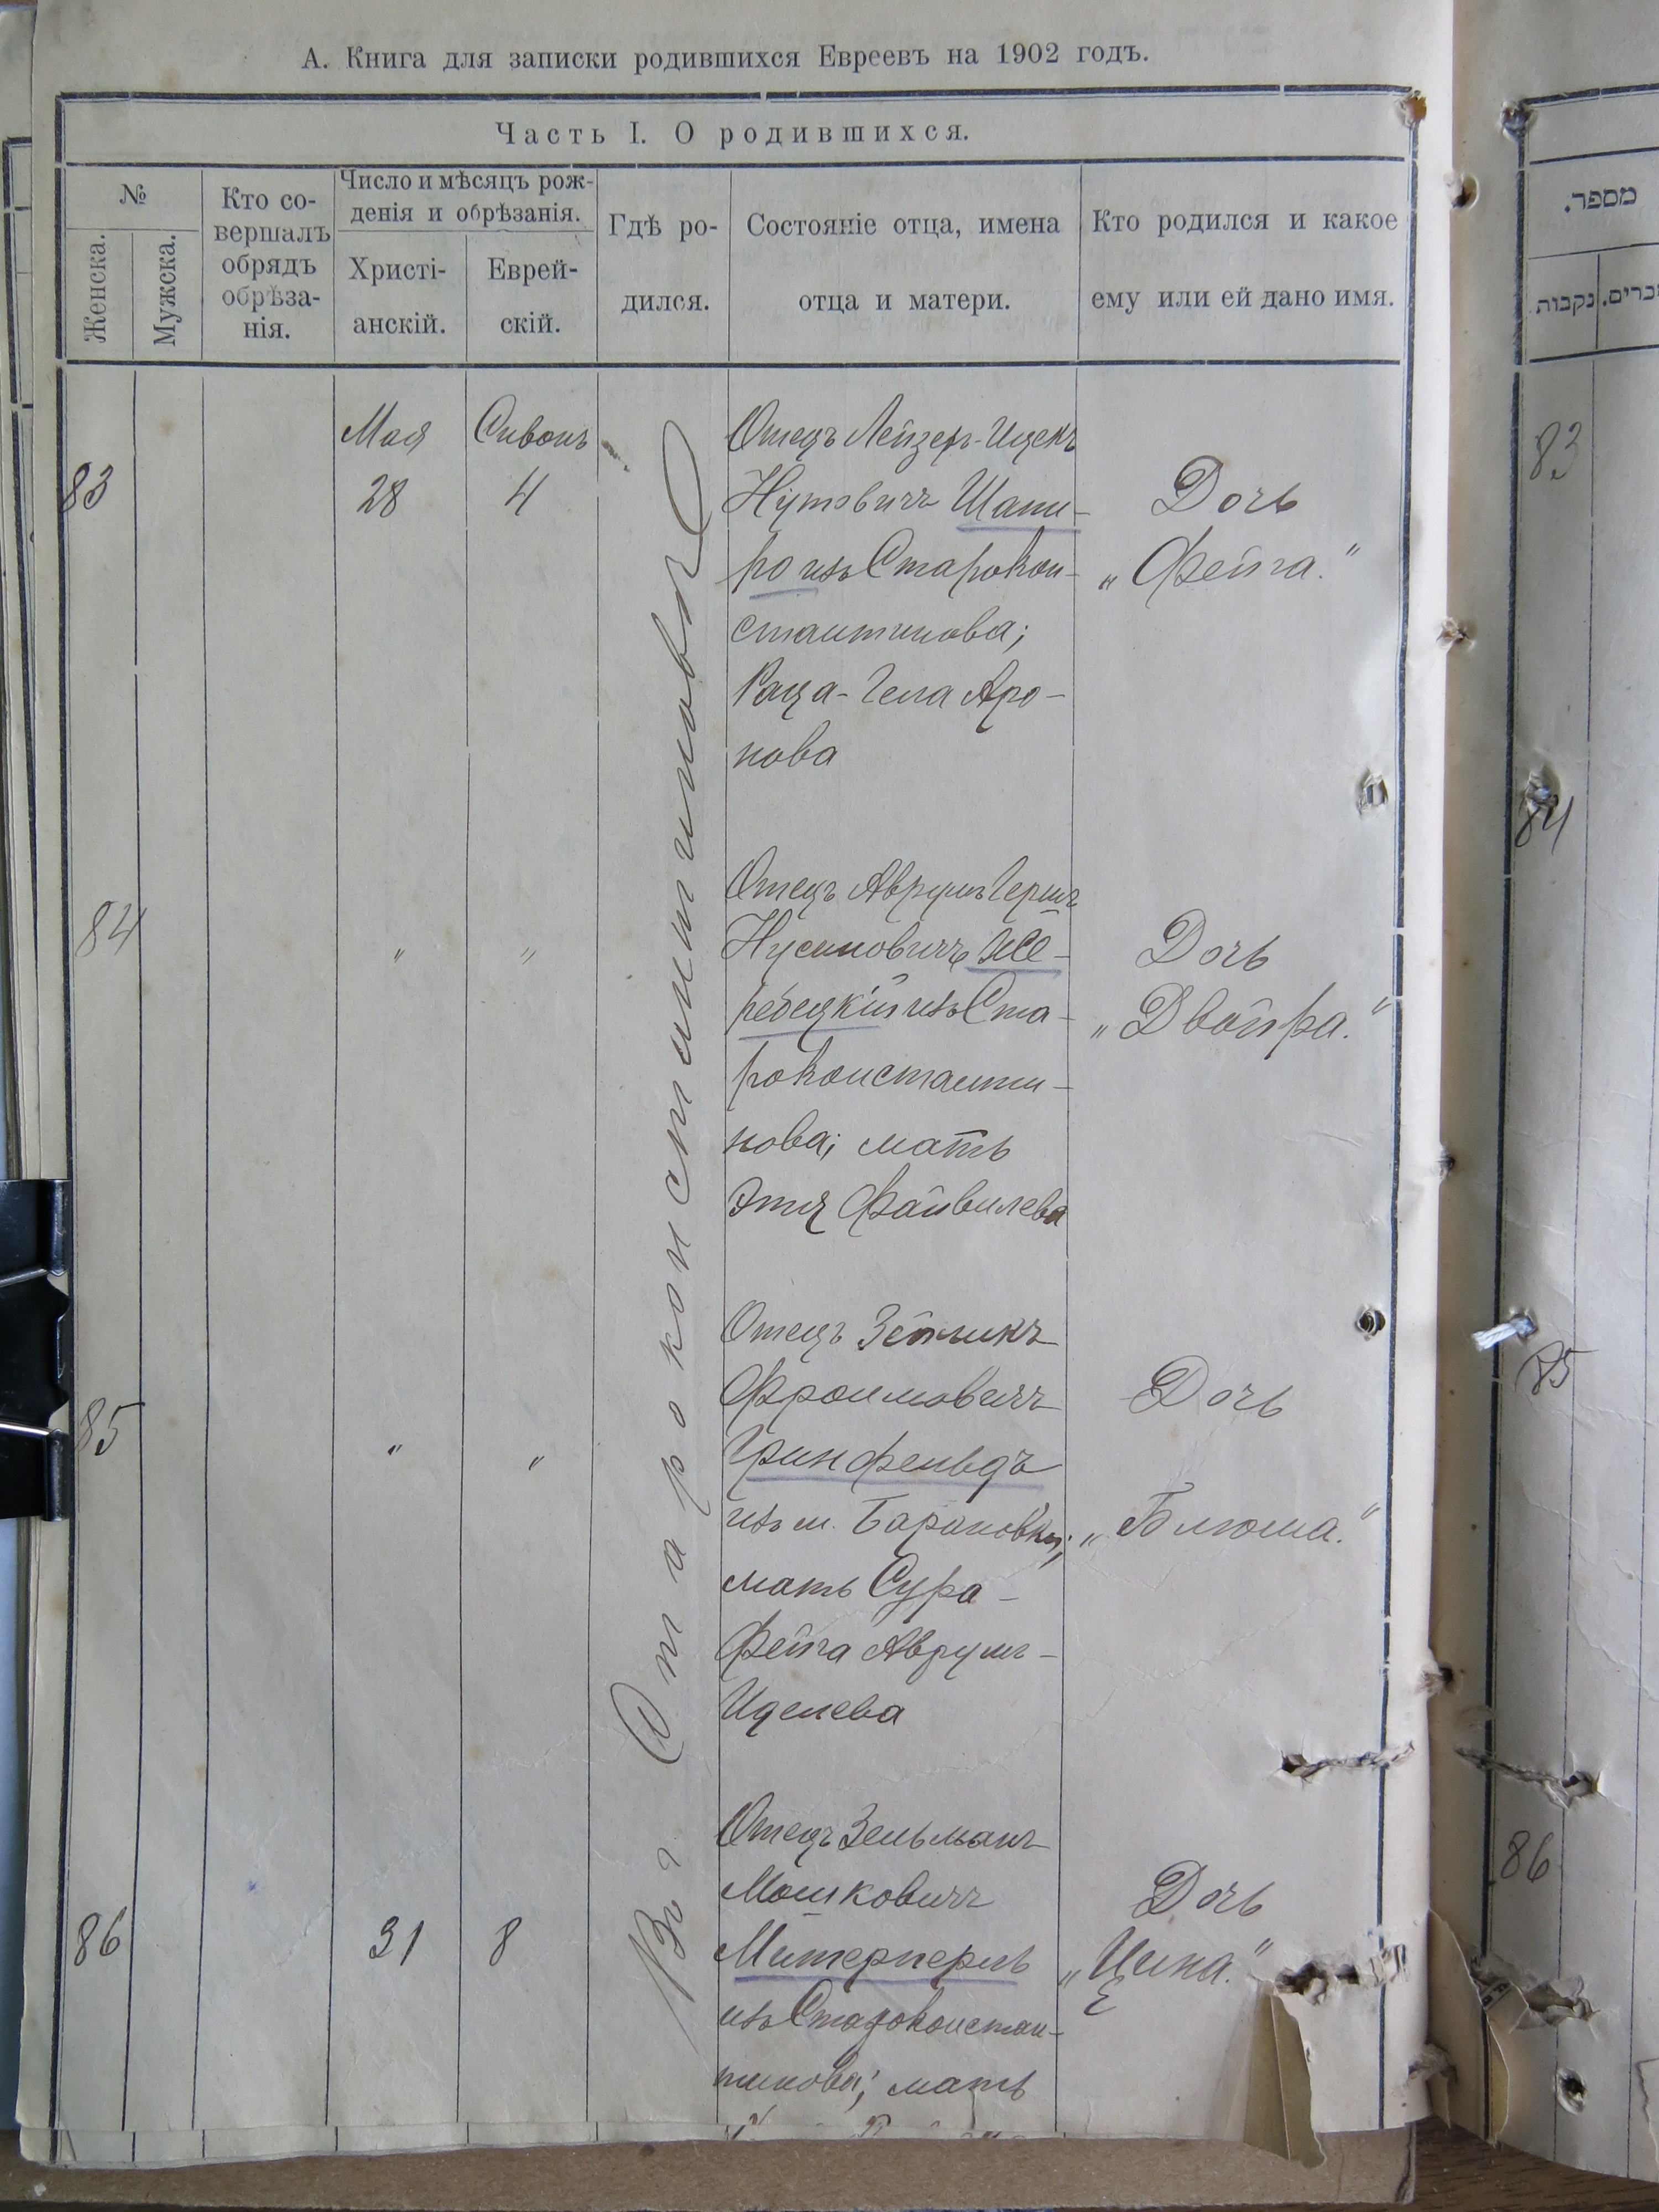 А. Книга для записки родившихся Евреевъ на 1902 годъ.
Часть I. О родившихся.
№
Женска.
Мужска.
Кто со-
вершалъ
обрядъ
обрѣза-
нія.
Число и мѣсяцъ рож-
денія и обрѣзанія.
Христі-
анскій.
Еврей-
скій.
Гдѣ ро-
дился.
Состояніе отца, имена
отца и матери.
Кто родился и какое
ему или ей дано имя.
83
Мая
28
Сивонъ
4
Въ г. Староконстантиновѣ
Отецъ Лейзеръ-Ицекъ
Шапи-
ро изъ Старокон-
стантинова;
Раца-Гела Аро-
нова
Дочь
„Фейга."
84
"
"
Отецъ Аврумъ Гершъ
Нусиновичъ Же-
ребецкій изъ Ста-
роконстанти-
нова; мать
Этя Файвилева
Дочь
„Двойра."
85
"
"
Отецъ Зейликъ
Фроимовичъ
Гринфельдъ
изъ м. Барановки;
мать Сура-
Фейга Аврумъ-
Иделева
Дочь
„Блюма."
86
31
8
Отецъ Зельманъ
Мошковичъ
Митерперль
изъ Староконстан-
тинова; мать
Дочь
„Цина."
מספר.
נקבות
זכרים.
83
84
85
86